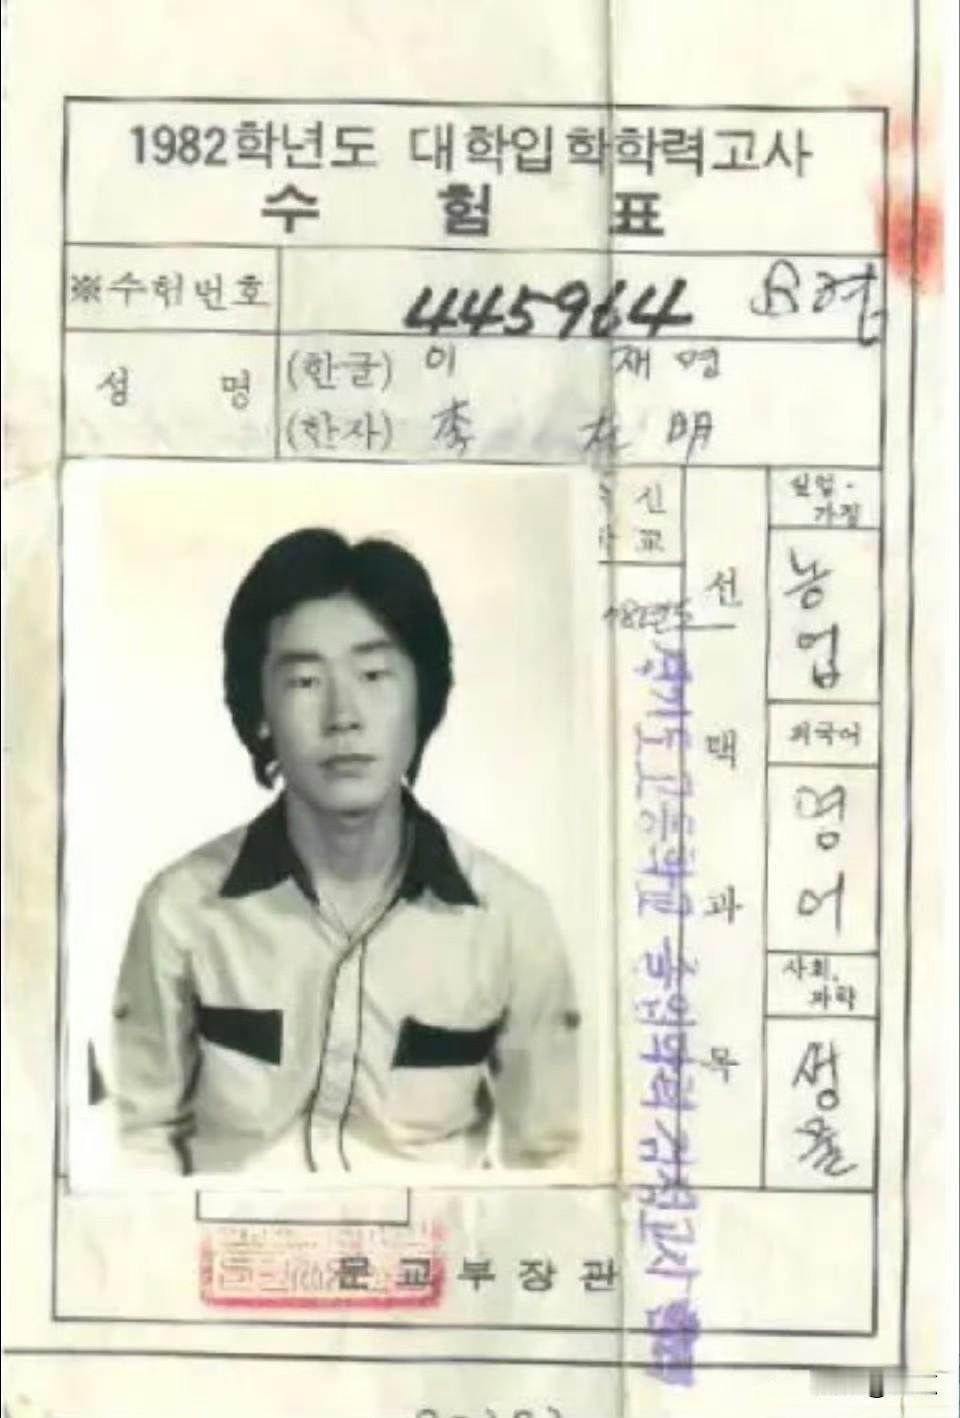 1982학년도 대학입학학력고사
수 험 표
※수험번호
445964
성 명
(한글) 이 재 명
(한자) 李 在 明
신
교
선 택 과 목
실업·
가정
농업
외국어
영어
사회,
과학
생물
고등학교 졸업학력 검정고시
문교부장관